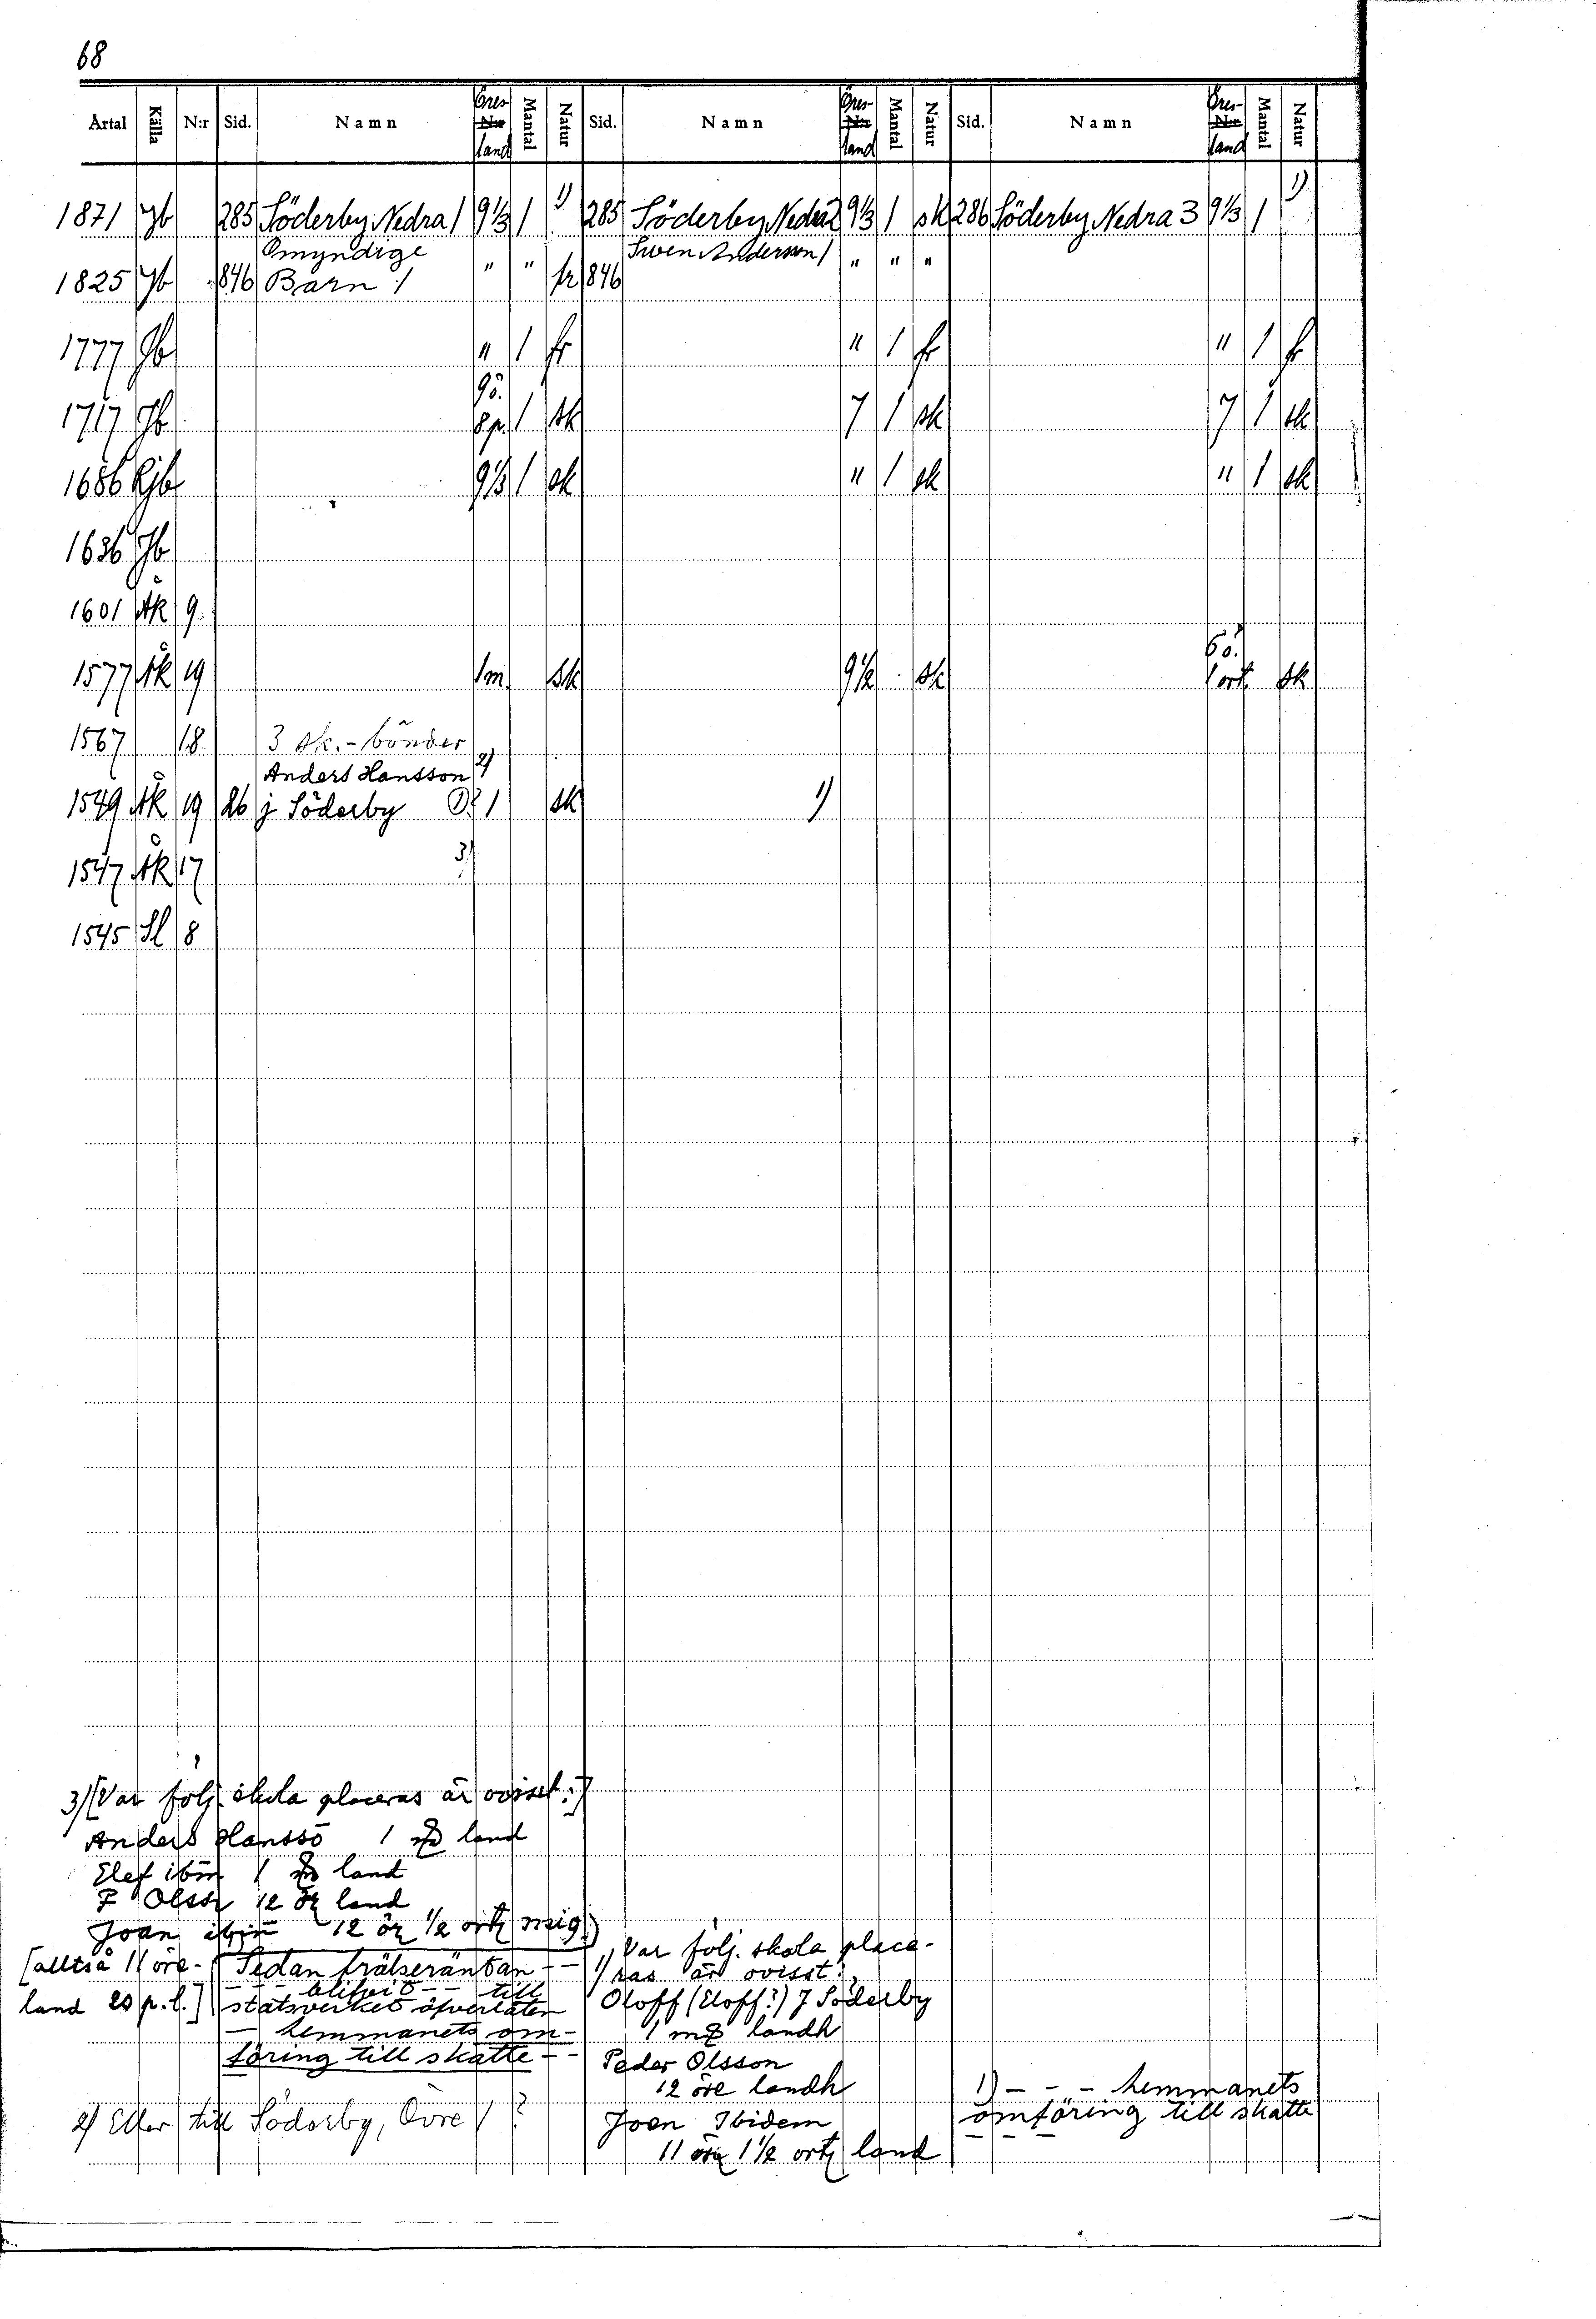 68
Artal Källa N:r Sid. Namn Öresland Mantal Natur Sid. Namn Öresland Mantal Natur Sid. Namn Öresland Mantal Natur
1871 Jb 285 Söderby, Nedra 1 9 1/3 1 1) 285 Söderby, Nedra 2 9 1/3 1 sk 286 Söderby Nedra 3 9 1/3 1 1)
Omyndige Swen Andersson 1
1825 Jb 846 Barn 1 " " fr 846 " " "
1777 Jb " 1 fr " 1 fr " 1 fr
9 ö.
1717 Jb 8 p. 1 sk 7 1 sk 7 1 sk
1686 Jb 9 1/3 1 sk " 1 sk " 1 sk
1636 Jb
1601 Åk 9
6 ö.
1577 Åk 19 1 m sk 9 1/2 sk 1 ort sk
1567 18 3 sk.-bönder
Anders Hansson 2)
1549 Åk 19 26 j Söderby 1 sk 1)
1547 Åk 17 3)
1545 Sl 8
3) [Var följ. skola placeras är ovisst:]
Anders Hanssō 1 land
Elef ibm 1 land
Olssz 12 öz land
Joan ibm 12 öz 1/2 ortz
[alltså 11 öre-
land 20 p.l.]
Sedan frälseräntan - -
blifvit - - till
statsverket öfverlåten
- hemmanets om-
föring till skatte - -
2) Eller till Söderby, Övre 1 ?
1) Var följ. skola place-
ras är ovisst:
Oloff (Eloff?) J Söderby
1 landh
Peder Olsson
12 öre landh
Joen Ibidem
11 öre 1 1/2 ortz land
1) - - - hemmanets
omföring till skatte
- - -